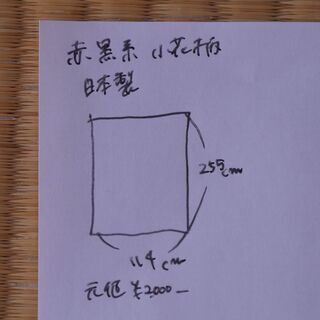 赤黒系 小花柄
日本製
255cm
114cm
元値 ¥2,000ー